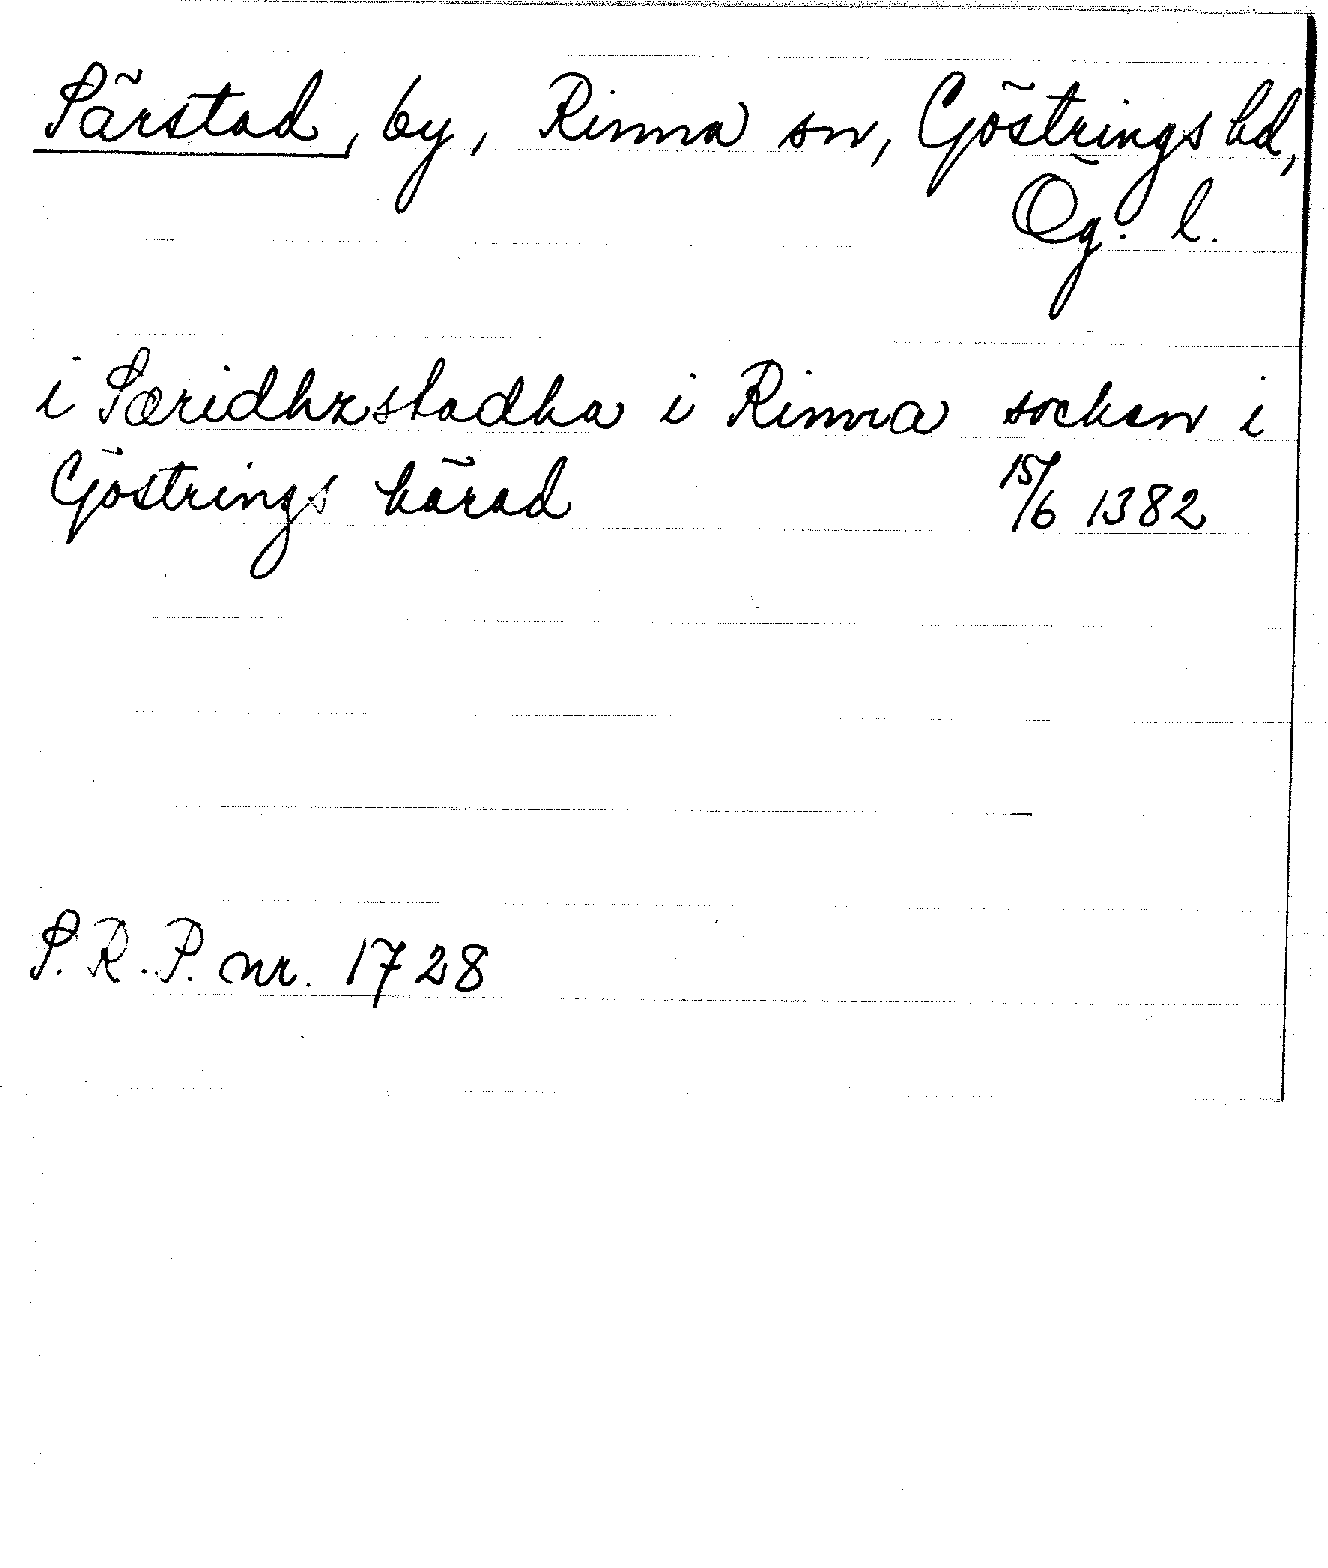 Särstad, by, Rinna sn, Göstrings hd,
Ög. l.
i Særidhzstadha i Rinna socken i
Göstrings härad 15/6 1382
S.R.P. nr. 1728